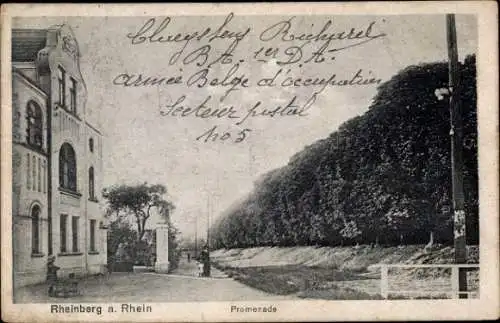 Richard
B.A. 1er D.A.
armee Belge d'occupation
Secteur postal
no 5
Rheinberg a. Rhein
Promenade